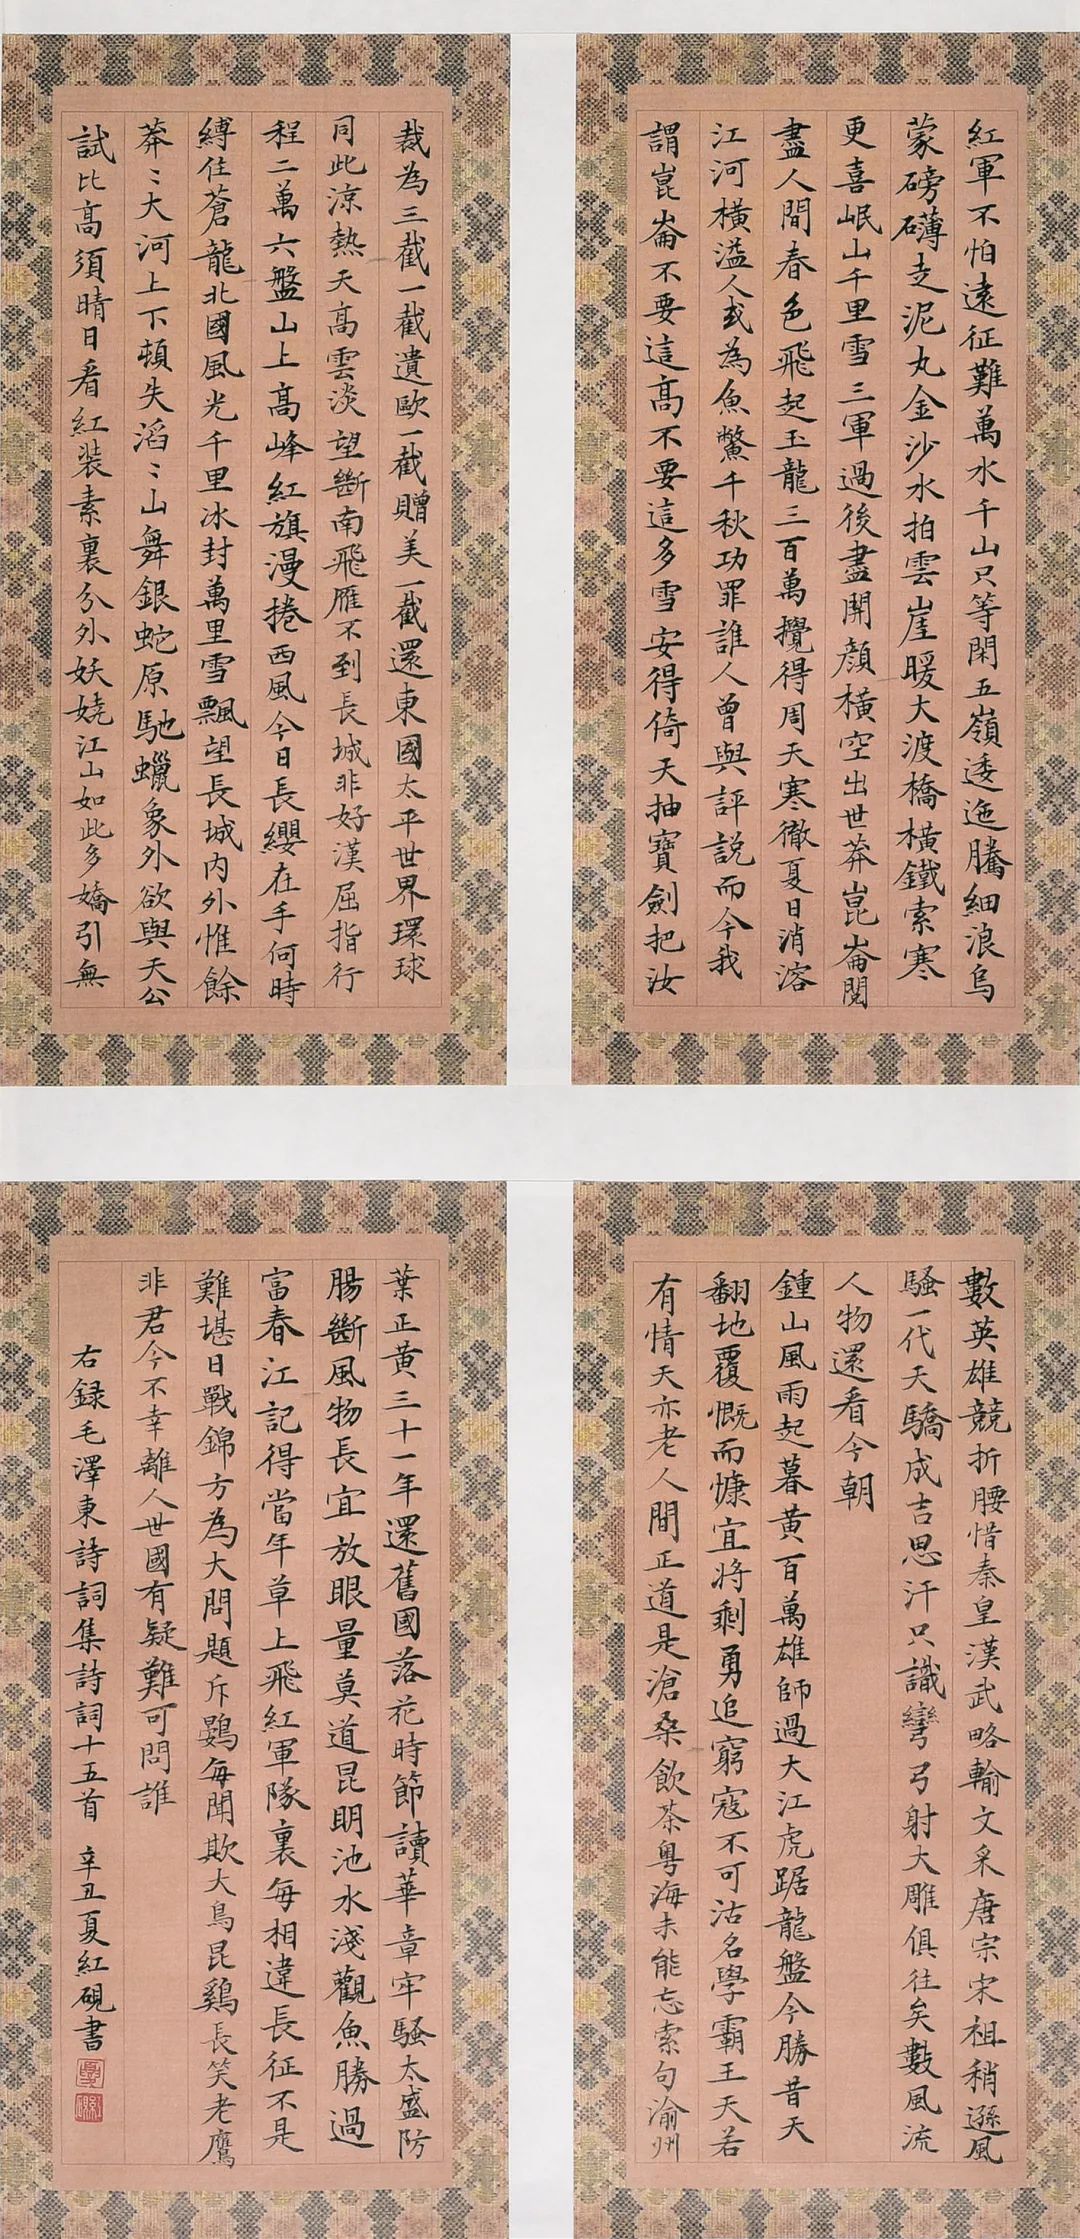 紅軍不怕遠征難萬水千山只等閑五嶺逶迤騰細浪烏
蒙磅礴走泥丸金沙水拍雲崖暖大渡橋橫鐵索寒
更喜岷山千里雪三軍過後盡開顏橫空出世莽崑崙閱
盡人間春色飛起玉龍三百萬攪得周天寒徹夏日消溶
江河橫溢人或為魚鱉千秋功罪誰人曾與評說而今我
謂崑崙不要這高不要這多雪安得倚天抽寶劍把汝
裁為三截一截遺歐一截贈美一截還東國太平世界環球
同此涼熱天高雲淡望斷南飛雁不到長城非好漢屈指行
程二萬六盤山上高峰紅旗漫捲西風今日長纓在手何時
縛住蒼龍北國風光千里冰封萬里雪飄望長城內外惟餘
莽〻大河上下頓失滔〻山舞銀蛇原馳蠟象外欲與天公
試比高須晴日看紅装素裏分外妖嬈江山如此多嬌引無
數英雄競折腰惜秦皇漢武略輸文采唐宗宋祖稍遜風
騷一代天驕成吉思汗只識彎弓射大雕俱往矣數風流
人物還看今朝
鍾山風雨起暮黃百萬雄師過大江虎踞龍盤今勝昔天
翻地覆慨而慷宜將剩勇追窮寇不可沽名學霸王天若
有情天亦老人間正道是滄桑飲茶粵海未能忘索句渝州
葉正黃三十一年還舊國落花時節讀華章牢騷太盛防
腸斷風物長宜放眼量莫道昆明池水淺觀魚勝過
富春江記得當年草上飛紅軍隊裏每相違長征不是
難堪日戰錦方為大問題斥鷃每聞欺大鳥昆鷄長笑老鷹
非君今不幸離人世國有疑難可問誰
右録毛澤東詩詞集詩詞十五首 辛丑夏紅硯書